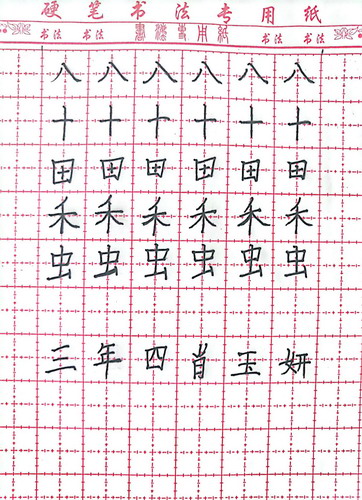 硬笔书法专用纸
书法 书法 書法专用紙 书法 书法
八八八八八八
十十十十十十
田田田田田田
禾禾禾禾禾禾
虫虫虫虫虫虫
三年四肖玉妍